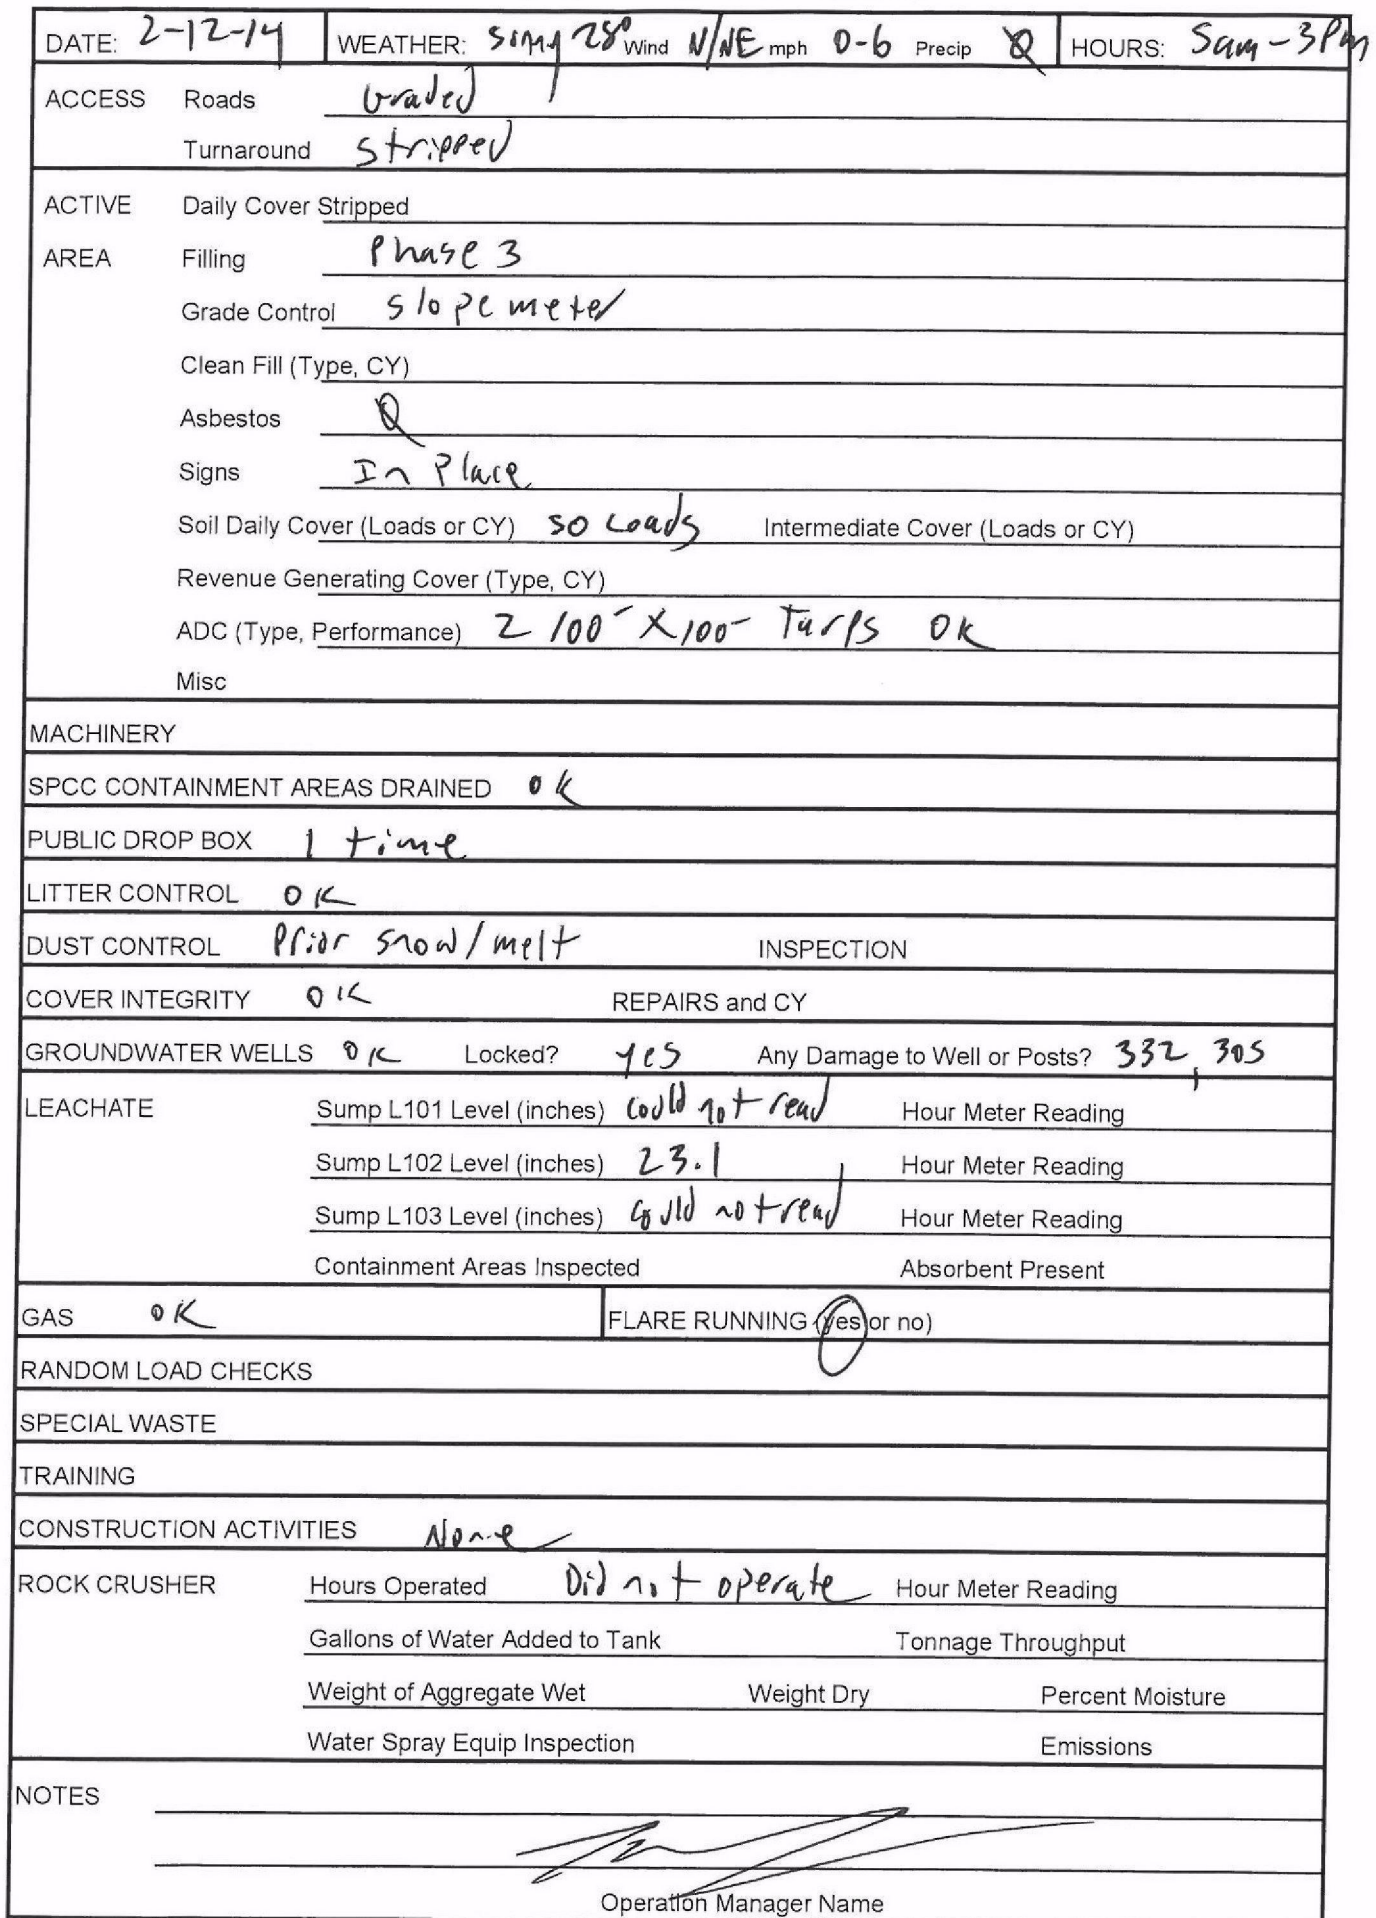 DATE: 2-12-14 WEATHER: sunny 28° Wind N/NE mph 0-6 Precip Ø HOURS: 5am-3Pm
ACCESS Roads Graded
Turnaround stripped
ACTIVE Daily Cover Stripped
AREA Filling Phase 3
Grade Control slope meter
Clean Fill (Type, CY)
Asbestos Ø
Signs In Place
Soil Daily Cover (Loads or CY) 50 Loads Intermediate Cover (Loads or CY)
Revenue Generating Cover (Type, CY)
ADC (Type, Performance) 2 100' X100' Tarps OK
Misc
MACHINERY
SPCC CONTAINMENT AREAS DRAINED OK
PUBLIC DROP BOX 1 time
LITTER CONTROL OK
DUST CONTROL Prior snow/melt INSPECTION
COVER INTEGRITY OK REPAIRS and CY
GROUNDWATER WELLS OK Locked? yes Any Damage to Well or Posts? 332, 305
LEACHATE Sump L101 Level (inches) could not read Hour Meter Reading
Sump L102 Level (inches) 23.1 Hour Meter Reading
Sump L103 Level (inches) could not read Hour Meter Reading
Containment Areas Inspected Absorbent Present
GAS OK FLARE RUNNING (yes or no)
RANDOM LOAD CHECKS
SPECIAL WASTE
TRAINING
CONSTRUCTION ACTIVITIES None
ROCK CRUSHER Hours Operated Did not operate Hour Meter Reading
Gallons of Water Added to Tank Tonnage Throughput
Weight of Aggregate Wet Weight Dry Percent Moisture
Water Spray Equip Inspection Emissions
NOTES
Operation Manager Name